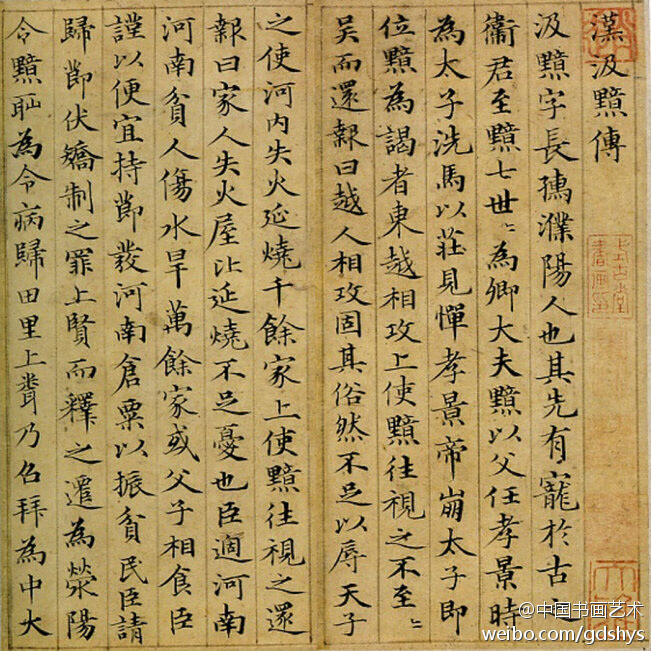 漢汲黯傳
汲黯字長孺濮陽人也其先有寵於古之
衞君至黯七世〻為卿大夫黯以父任孝景時
為太子洗馬以莊見憚孝景帝崩太子即
位黯為謁者東越相攻上使黯往視之不至〻
吳而還報曰越人相攻固其俗然不足以辱天子
之使河内失火延燒千餘家上使黯往視之還
報曰家人失火屋比延燒不足憂也臣適河南
河南貧人傷水旱萬餘家或父子相食臣
謹以便宜持節發河南倉粟以振貧民臣請
歸節伏矯制之罪上賢而釋之遷為滎陽
令黯恥為令病歸田里上聞乃召拜為中大
@中国书画艺术
weibo.com/gdshys